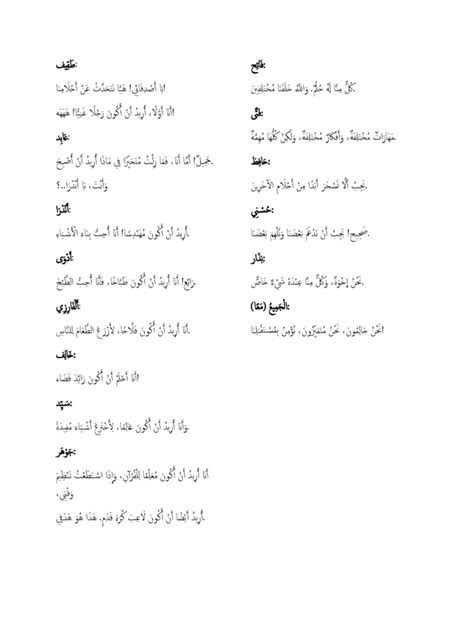 يَا أَصْدِقَائِي! هَيَّا نَتَحَدَّثُ عَنْ أَحْلَامِنَا!
أَنَا أَوَّلًا، أُرِيدُ أَنْ أَكُونَ رَجُلًا غَنِيًّا! هَهَهه!
عَابِد:
جَمِيلٌ! أَمَّا أَنَا، فَمَا زِلْتُ مُتَحَيِّرًا فِي مَاذَا أُرِيدُ أَنْ أُصْبِحَ.
وَأَنْتَ، يَا أَنْدْرَا..؟
أَنْدْرَا:
أُرِيدُ أَنْ أَكُونَ مُهَنْدِسًا! أَنَا أُحِبُّ بِنَاءَ الْأَشْيَاءِ.
أَدْوَى:
رَائِعٌ! أَنَا أُرِيدُ أَنْ أَكُونَ طَبَّاخًا، فَأَنَا أُحِبُّ الطَّبْخَ.
أَلْفَارِزِي:
أَنَا أُرِيدُ أَنْ أَكُونَ فَلَّاحًا، لِأَزْرَعَ الطَّعَامَ لِلنَّاسِ.
خَالِف:
أَنَا أَحْلَمُ أَنْ أَكُونَ رَائِدَ فَضَاء!
سَيِّد:
وَأَنَا أُرِيدُ أَنْ أَكُونَ عَالِمًا، لِأَخْتَرِعَ أَشْيَاءَ مُفِيدَةً.
جَوْهَر:
أَنَا أُرِيدُ أَنْ أَكُونَ مُعَلِّمًا لِلْقُرْآنِ، وَإِذَا اسْتَطَعْتُ تَنْظِيمَ
وَقْتِي،
أُرِيدُ أَيْضًا أَنْ أَكُونَ لَاعِبَ كُرَةِ قَدَمٍ. هَذَا هُوَ هَدَفِي.
فَاتِح:
كُلٌّ مِنَّا لَهُ حُلْمٌ. وَاللهُ خَلَقَنَا مُخْتَلِفِينَ.
فَتًى:
مَهَارَاتٌ مُخْتَلِفَةٌ، وَأَفْكَارٌ مُخْتَلِفَةٌ، وَلَكِنْ كُلُّهَا مُهِمَّةٌ.
حَافِظ:
يَجِبُ أَلَّا نَسْخَرَ أَبَدًا مِنْ أَحْلَامِ الْآخَرِينَ.
حُسْنِي:
صَحِيحٌ! يَجِبُ أَنْ نَدْعَمَ بَعْضَنَا وَنُلْهِمَ بَعْضَنَا.
بِنْدَار:
نَحْنُ إِخْوَةٌ، وَكُلٌّ مِنَّا عِنْدَهُ شَيْءٌ خَاصٌّ.
الْجَمِيعُ (مَعًا):
نَحْنُ حَالِمُونَ، نَحْنُ مُتَمَيِّزُونَ، نُؤْمِنُ بِمُسْتَقْبَلِنَا!